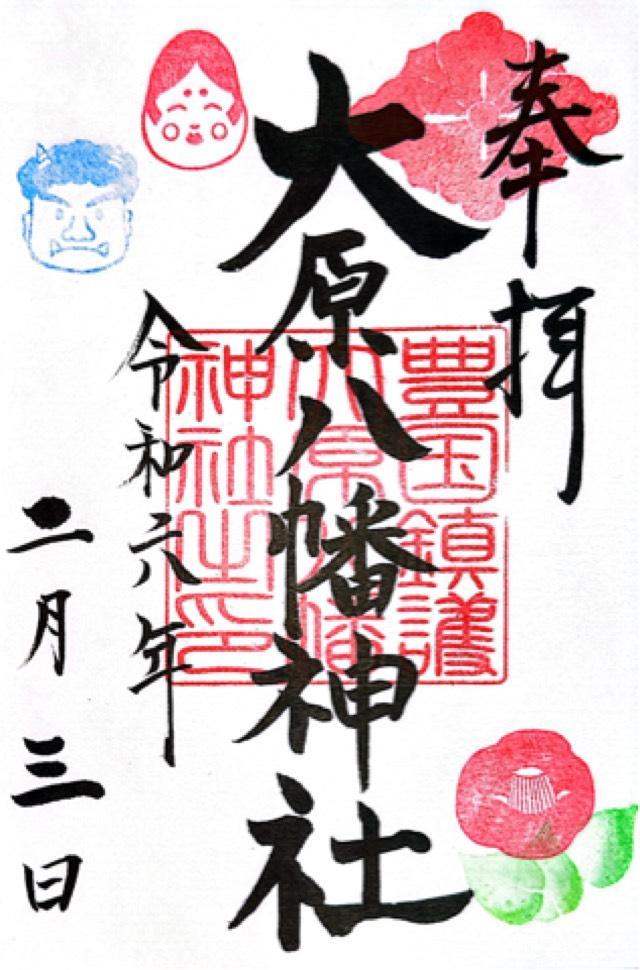 奉拝
大原八幡神社
豊国鎮護
大原八幡
神社之印
令和六年
二月三日